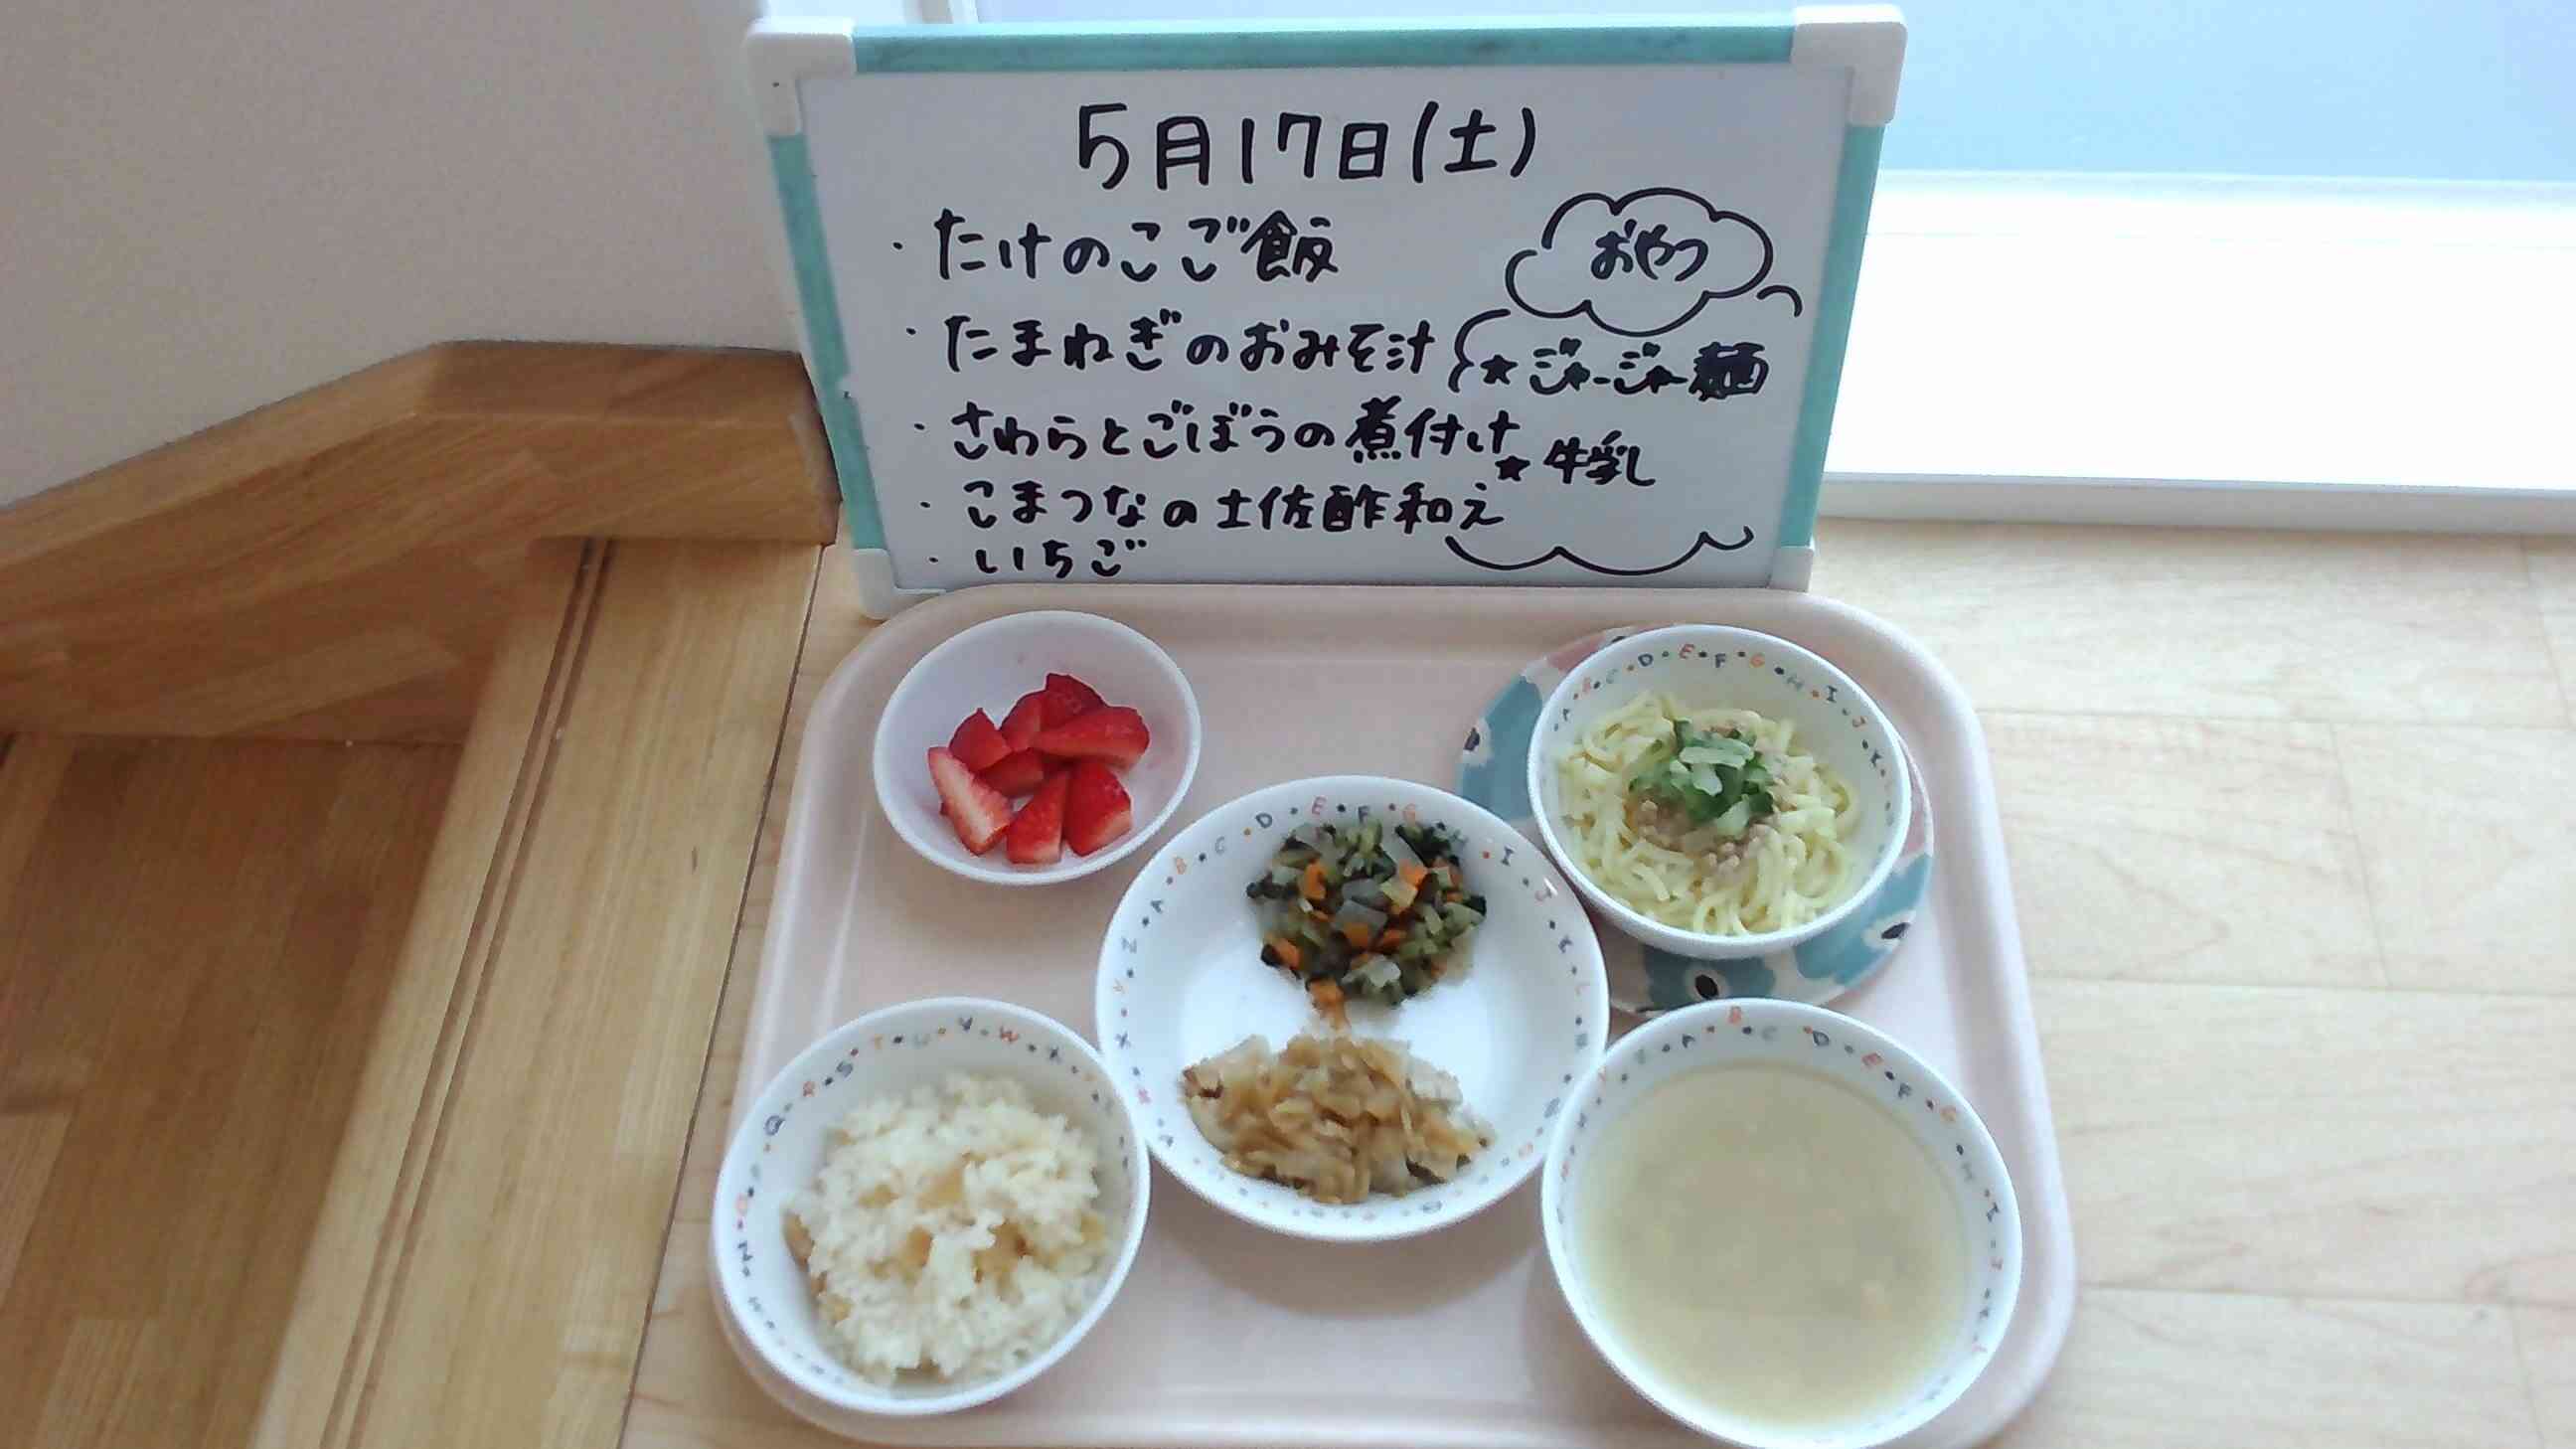 5月17日(土)
・たけのこご飯
・たまねぎのおみそ汁
・さわらとごぼうの煮付け
・こまつなの土佐酢和え
・いちご
おやつ
★ジャージャー麺
★牛乳
A・B・C・D・E・F・G・H・I・J・K
A・B・C・D・E・F・G・H・I・J・K・L
Q・R・S・T・U・V・W・X
A・B・C・D・E・F・G・H・I・J